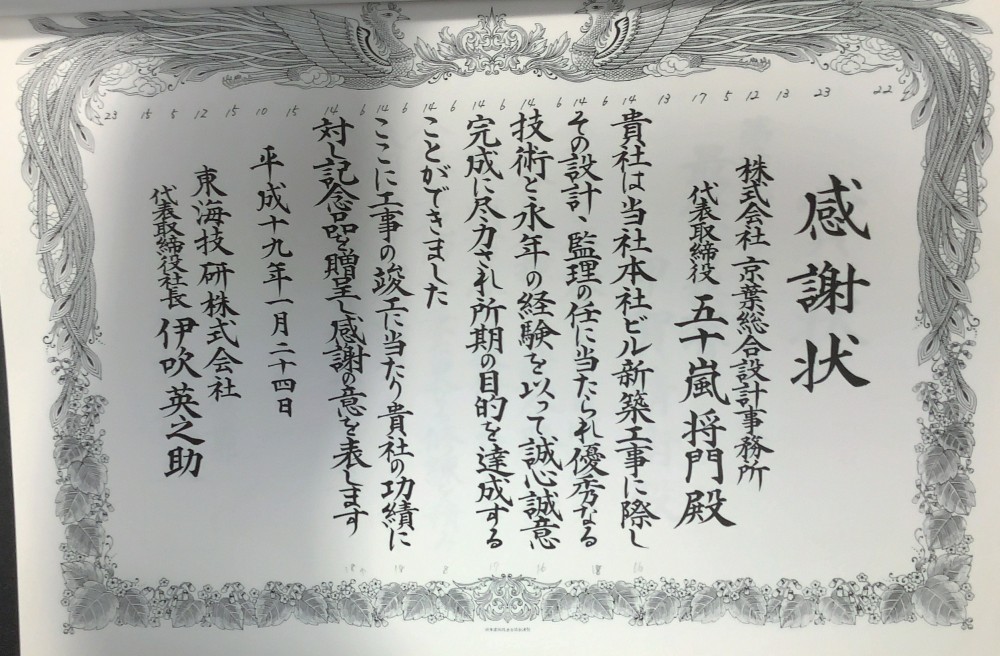 感謝状
株式会社 京葉総合設計事務所
代表取締役 五十嵐将門殿
貴社は当社本社ビル新築工事に際し
その設計、監理の任に当たられ優秀なる
技術と永年の経験を以って誠心誠意
完成に尽力され所期の目的を達成する
ことができました
ここに工事の竣工に当たり貴社の功績に
対し記念品を贈呈し感謝の意を表します
平成十九年一月二十四日
東海技研株式会社
代表取締役社長 伊吹英之助
23 15 5 12 15 10 15 14 6 14 6 14 6 14 6 14 6 14 6 14 13 17 5 12 13 23 22